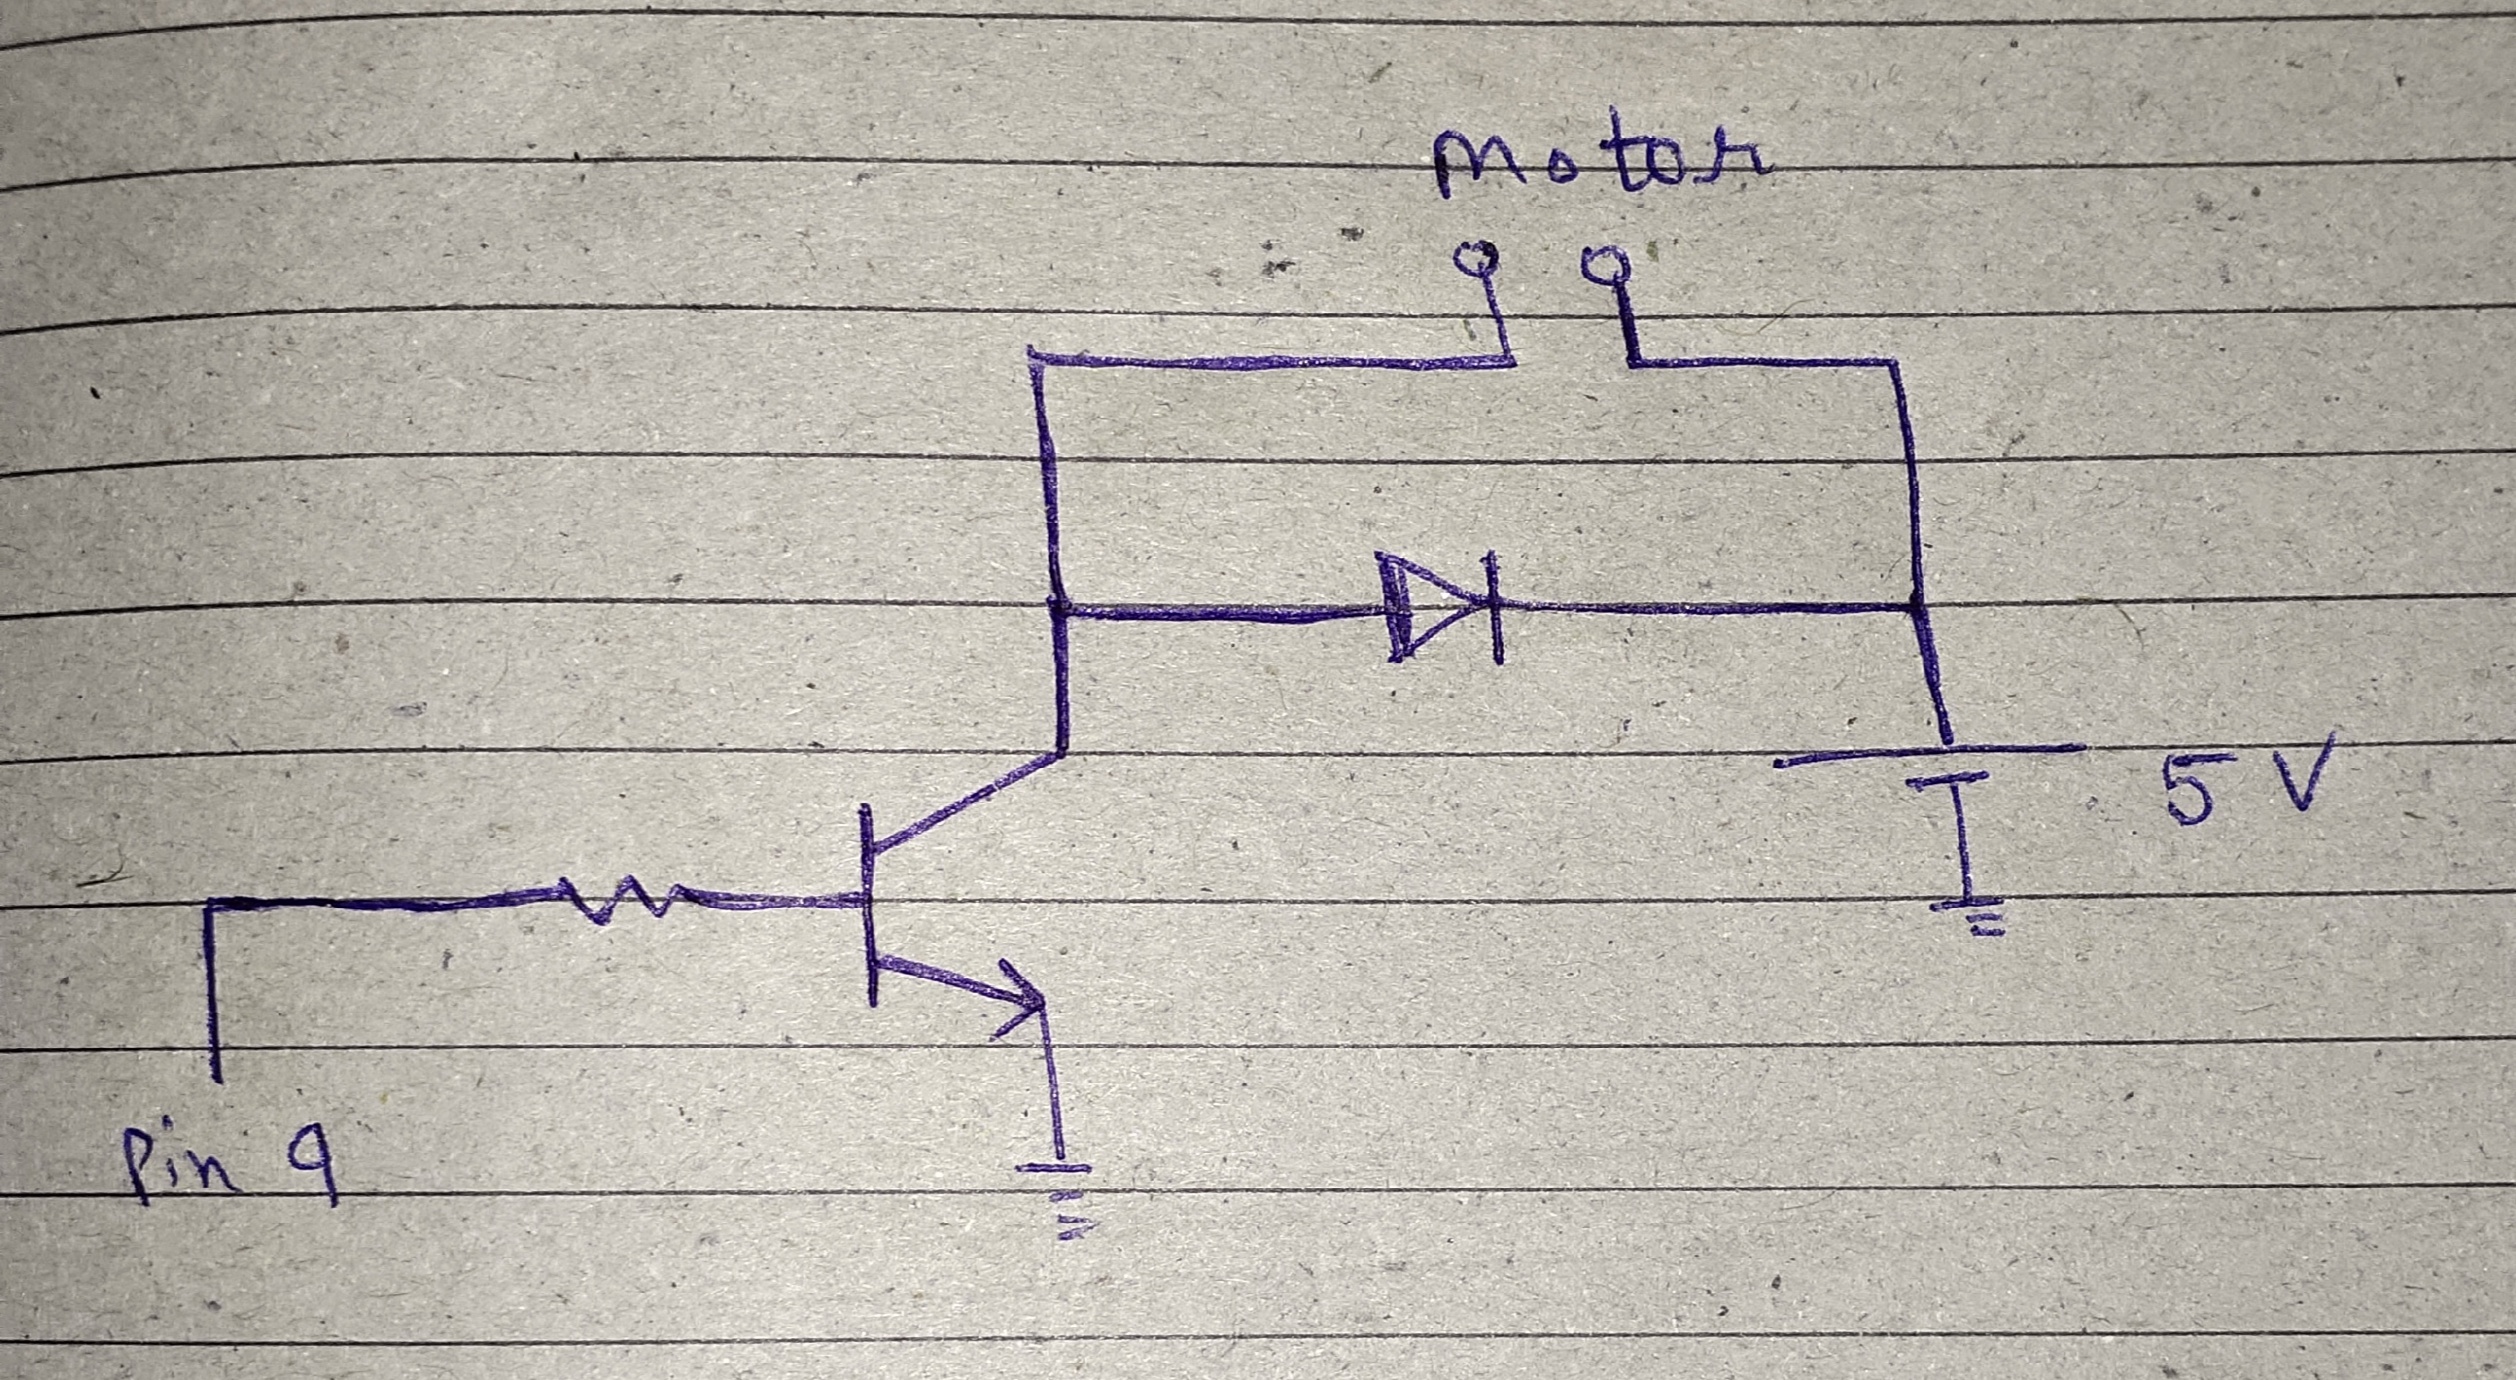 Motor
5 V
Pin 9